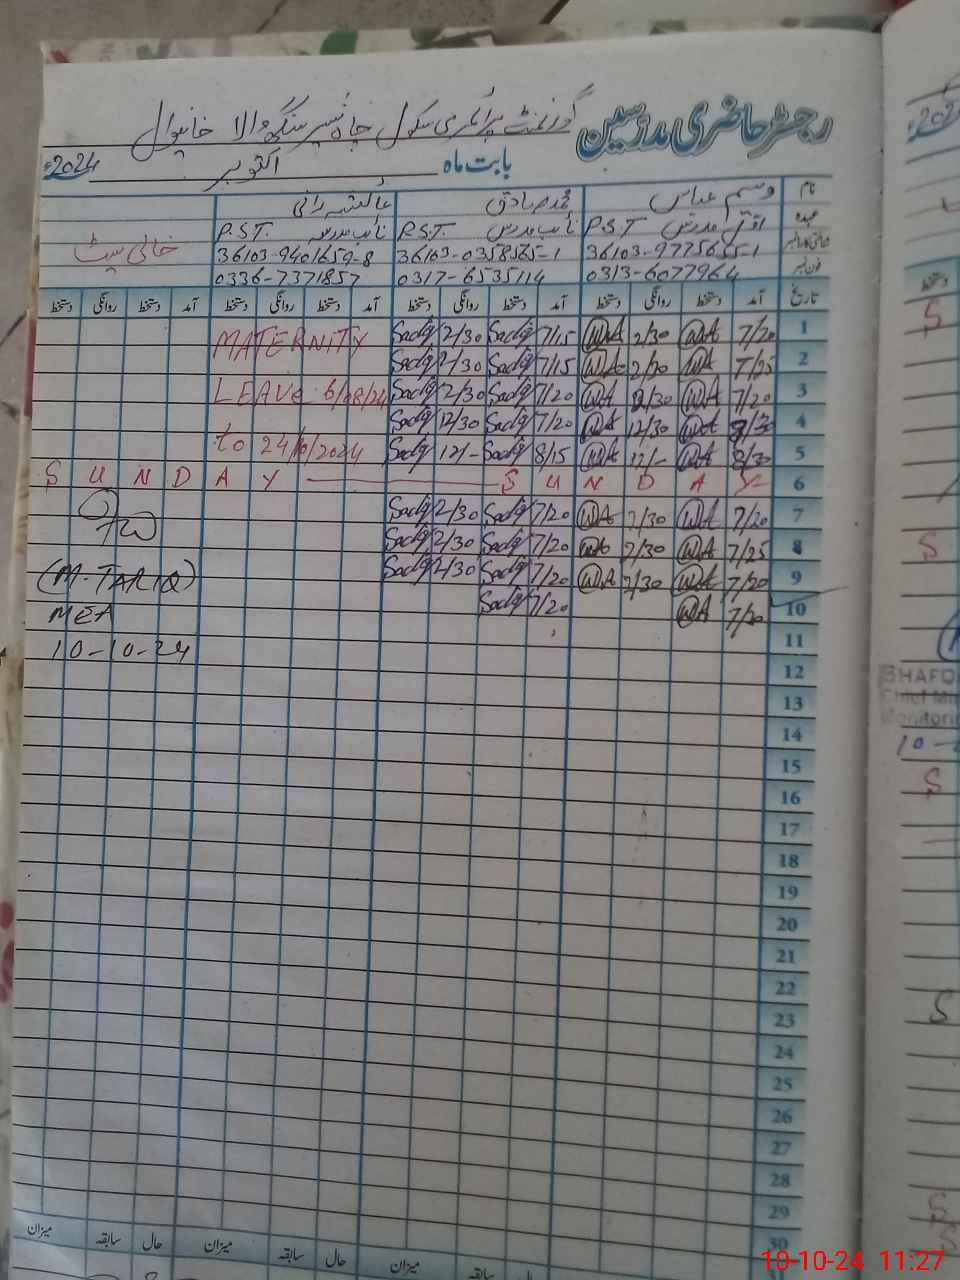 رجسٹر حاضری مدرسین گورنمنٹ پرائمری سکول چاہ شیر سنگھ والا خانیوال
بابت ماہ اکتوبر 2024ء
نام وسیم عباس محمد صادق عائشہ رانی
عہدہ P.S.T نائب مدرس P.S.T نائب مدرسہ P.S.T.
خالی سیٹ
36103-9775655-1 36103-0358565-1 36103-9401659-8
فون نمبر 0313-6077964 0317-6535114 0336-7371857
تاریخ آمد دستخط روانگی دستخط آمد دستخط روانگی دستخط آمد دستخط روانگی دستخط آمد دستخط روانگی دستخط
1 7/20 WA 2/30 WA 7/15 Sadiq 2/30 Sadiq MATERNITY
2 7/25 WA 2/30 WA 7/15 Sadiq 2/30 Sadiq
3 7/20 WA 2/30 WA 7/20 Sadiq 2/30 Sadiq LEAVE 6/08/24
4 WA 12/30 WA 7/20 Sadiq 12/30 Sadiq
5 8/30 WA 12/- WA 8/15 Sadiq 12/- Sadiq to 24/10/2024
6 S U N D A Y S U N D A Y
7 7/20 WA 2/30 WA 7/20 Sadiq 2/30 Sadiq
8 7/25 WA 2/30 WA 7/20 Sadiq 2/30 Sadiq
9 7/20 WA 2/30 WA 7/20 Sadiq 2/30 Sadiq (M. TARIQ)
10 7/20 WA 7/20 Sadiq MEA
11 10-10-24
12
13
14
15
16
17
18
19
20
21
22
23
24
25
26
27
28
29
30
میزان سابقہ حال میزان سابقہ حال میزان سابقہ
دستخط
S
S
Monitoring
S
S
S
10-10-24 11:27